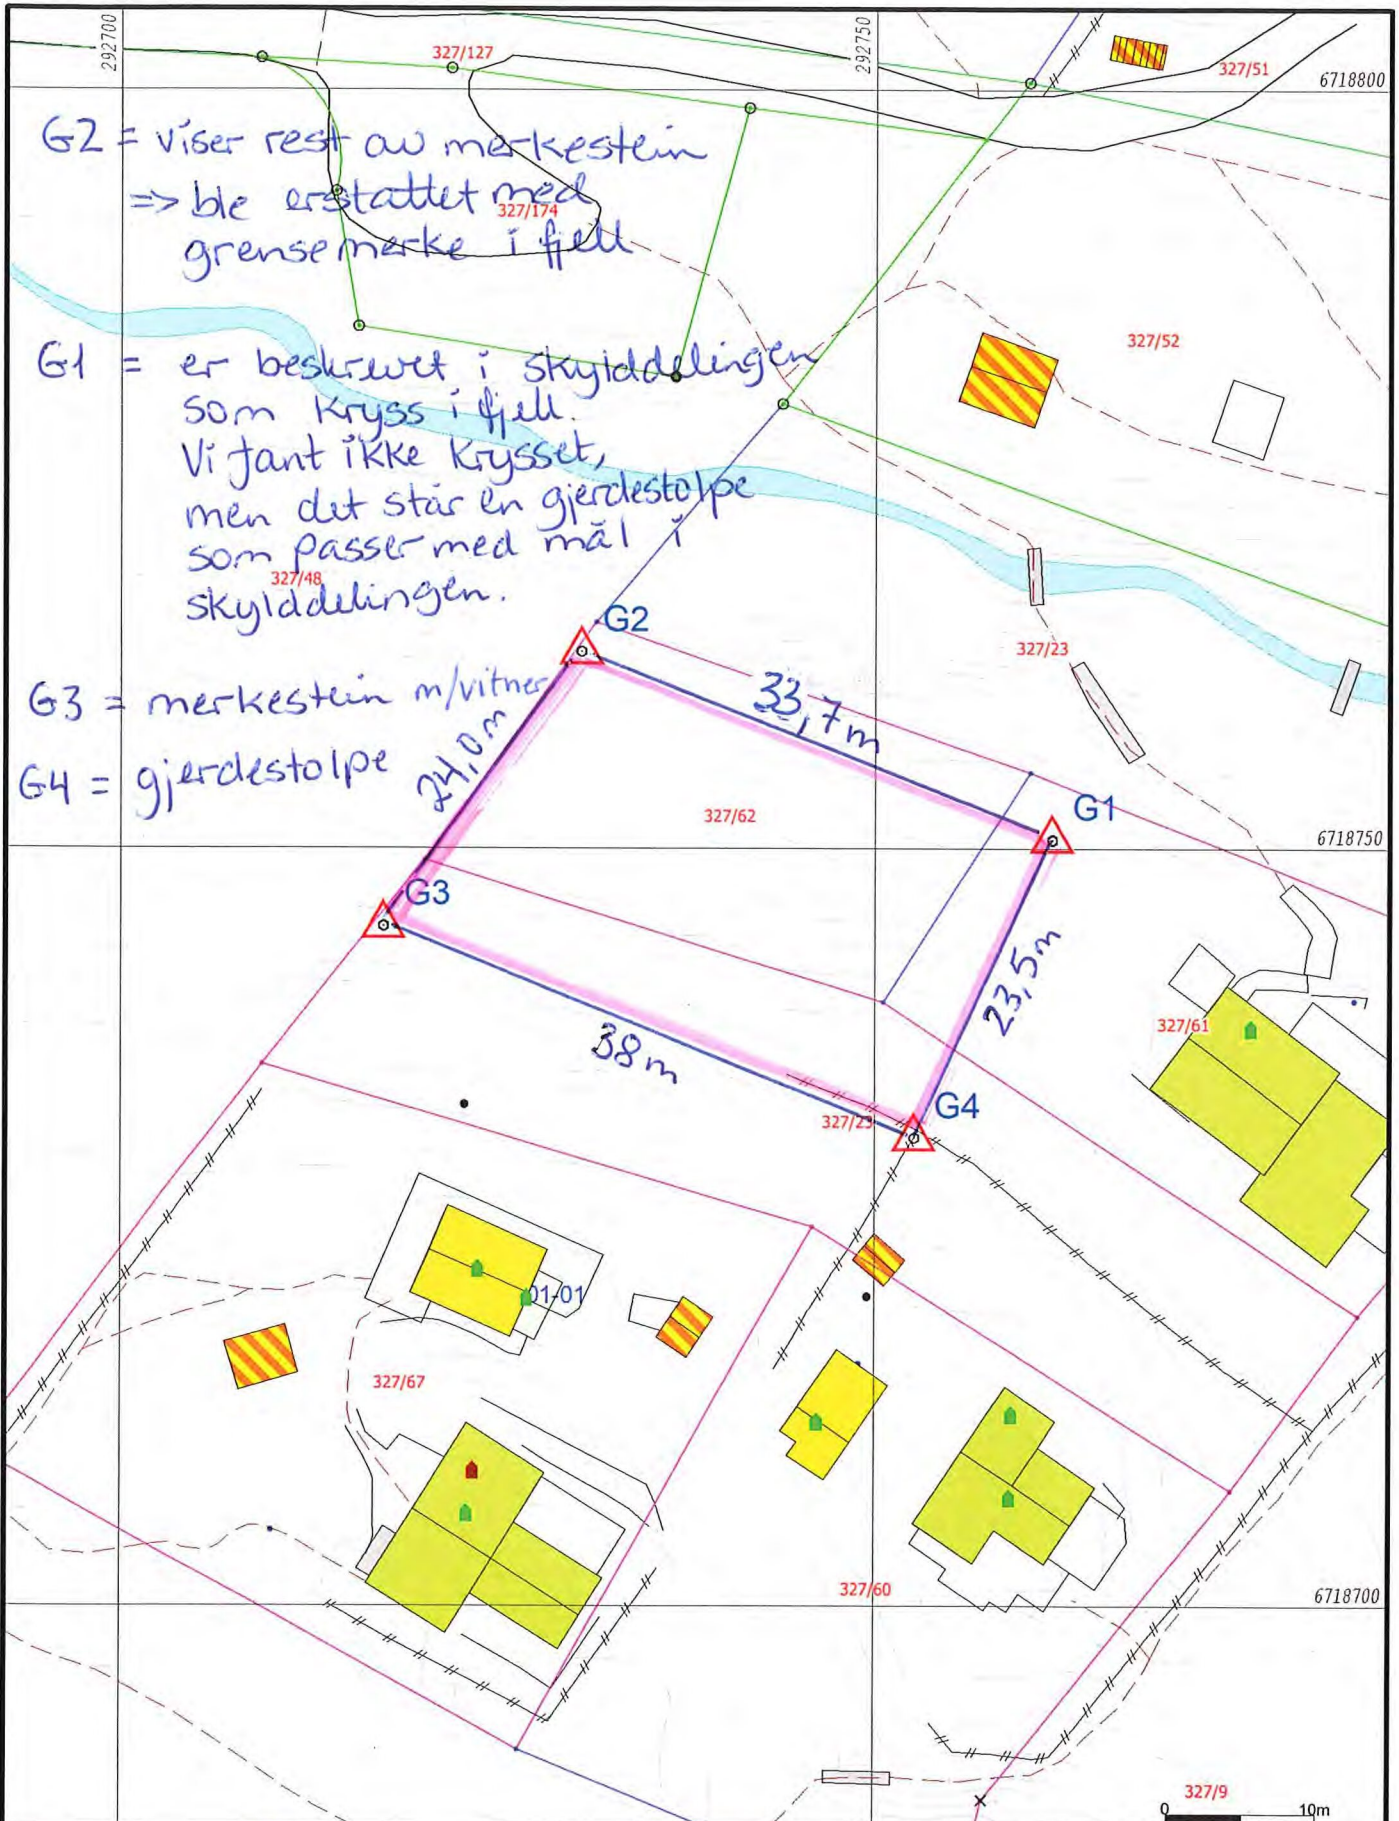 292700
292750
327/127
327/51
6718800
G2 = viser rest av merkestein
=> ble erstattet med
327/174
grensemerke i fjell
327/52
G1 = er beskrevet i skylddelingen
som kryss i fjell.
Vi fant ikke krysset,
men det står en gjerdestolpe
som passer med mål i
327/48
skylddelingen.
G2
327/23
G3 = merkestein m/vitner
33,7m
24,0m
G4 = gjerdestolpe
327/62
G1
6718750
G3
23,5m
327/61
38m
G4
327/23
01-01
327/67
327/60
6718700
327/9
0 10m